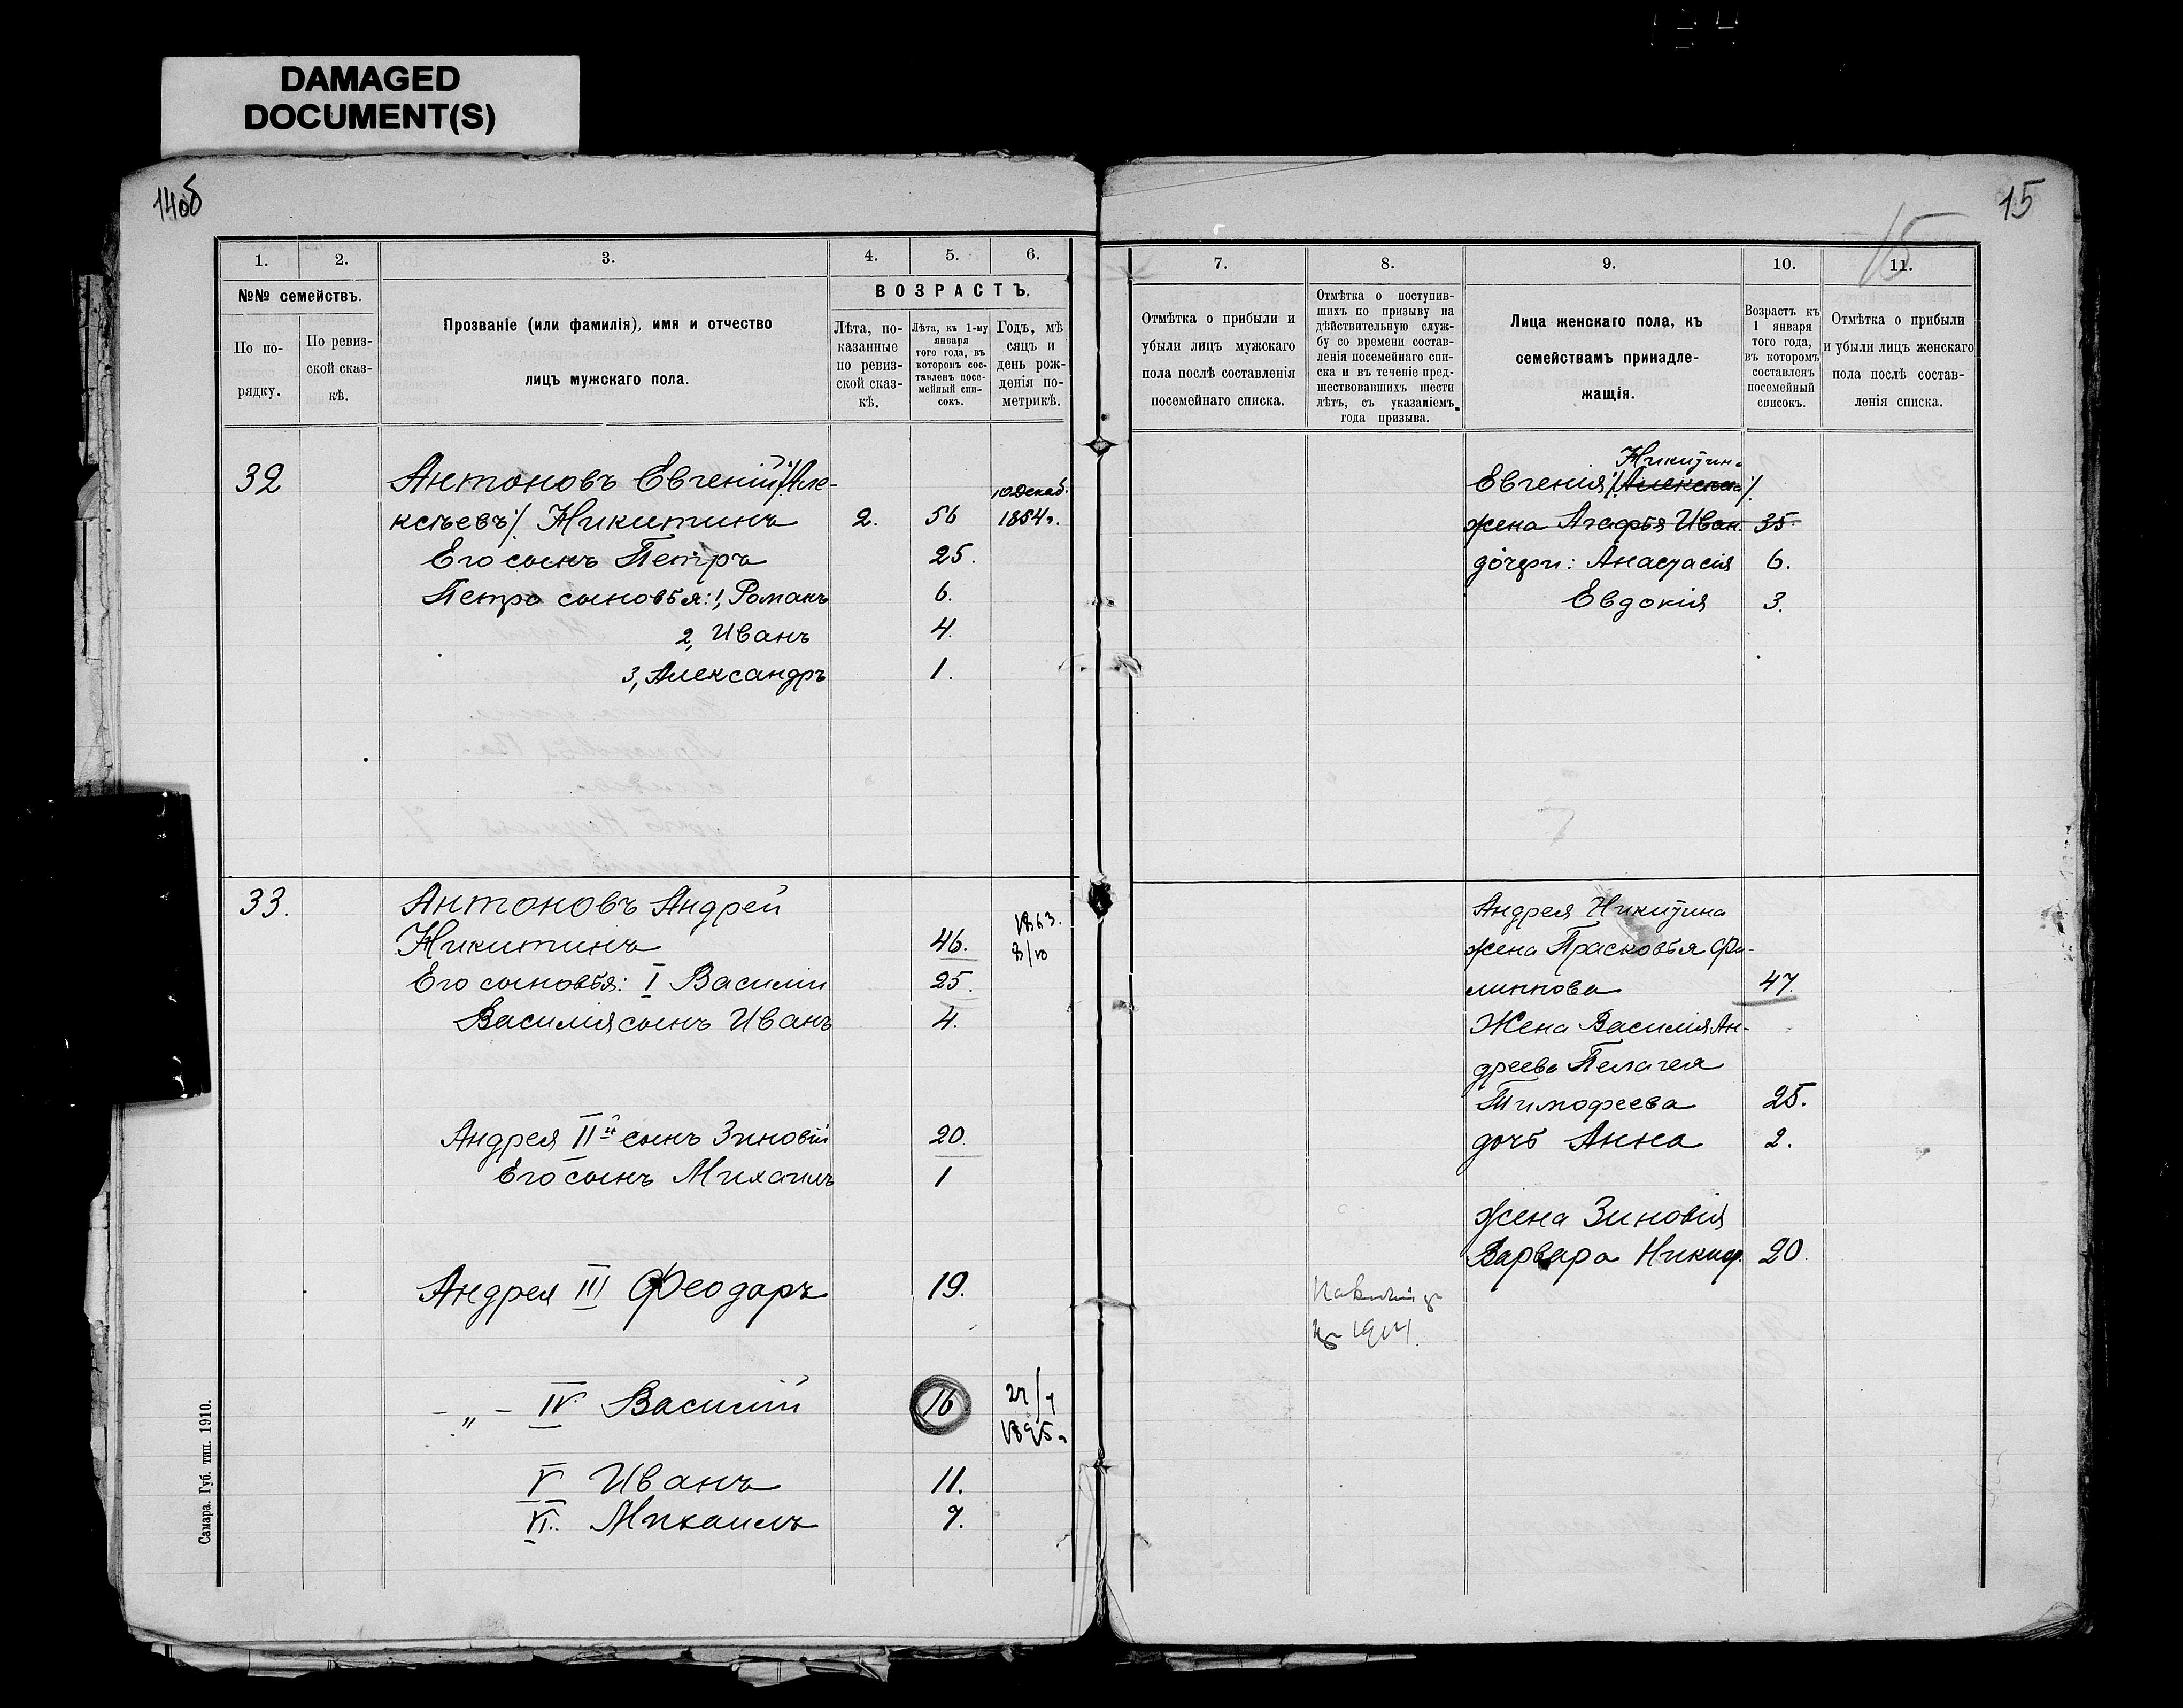 DAMAGED
DOCUMENT(S)
14об
1. 2. 3. 4. 5. 6.
№№ семействъ.
По по-
рядку.
По ревиз-
ской сказ-
кѣ.
Прозваніе (или фамилія), имя и отчество
лицъ мужскаго пола.
ВОЗРАСТЪ.
Лѣта, по-
казанные
по ревиз-
ской сказ-
кѣ.
Лѣта, къ 1-му
января
того года, въ
которомъ сос-
тавленъ посе-
мейный спи-
сокъ.
Годъ, мѣ
сяцъ и
день рож-
денія по-
метрикѣ.
32 Антоновъ Евгеній /Але- 10 Декаб.
ксѣевъ/. Никитинъ 2. 56 1854г.
Его сынъ Петръ 25.
Петра сыновья: 1, Романъ 6.
2, Иванъ 4.
3, Александръ 1.
33. Антоновъ Андрей 1863.
Никитинъ 46. 8/10
Его сыновья: I Василій 25.
Василія сынъ Иванъ 4.
Андрея IIй сынъ Зиновій 20.
Его сынъ Михаилъ 1
Андрея III Феодоръ 19.
- „ - IV Василій 16 27/7
1895г.
V Иванъ 11.
VI. Михаилъ 7.
Самара. Губ. тип. 1910.
15
15
7. 8. 9. 10. 11.
Отмѣтка о прибыли и
убыли лицъ мужскаго
пола послѣ составленія
посемейнаго списка.
Отмѣтка о поступив-
шихъ по призыву на
дѣйствительную служ-
бу со времени состав-
ленія посемейнаго спи-
ска и въ теченіе пред-
шествовавшихъ шести
лѣтъ, съ указаніемъ
года призыва.
Лица женскаго пола, къ
семействамъ принадле-
жащія.
Возрастъ къ
1 января
того года,
въ которомъ
составленъ
посемейный
списокъ.
Отмѣтка о прибыли
и убыли лицъ женскаго
пола послѣ состав-
ленія списка.
Никитин.
Евгенія /Алексѣева/.
жена Агафья Иван. 35.
дочери: Анастасія 6.
Евдокія 3.
Андрея Никитина
жена Прасковья Фи-
липпова 47.
Жена Василія Ан-
дреева Пелагея
Тимофеева 25.
дочь Анна 2.
жена Зиновія
Варвара Никиф. 20.
1914.